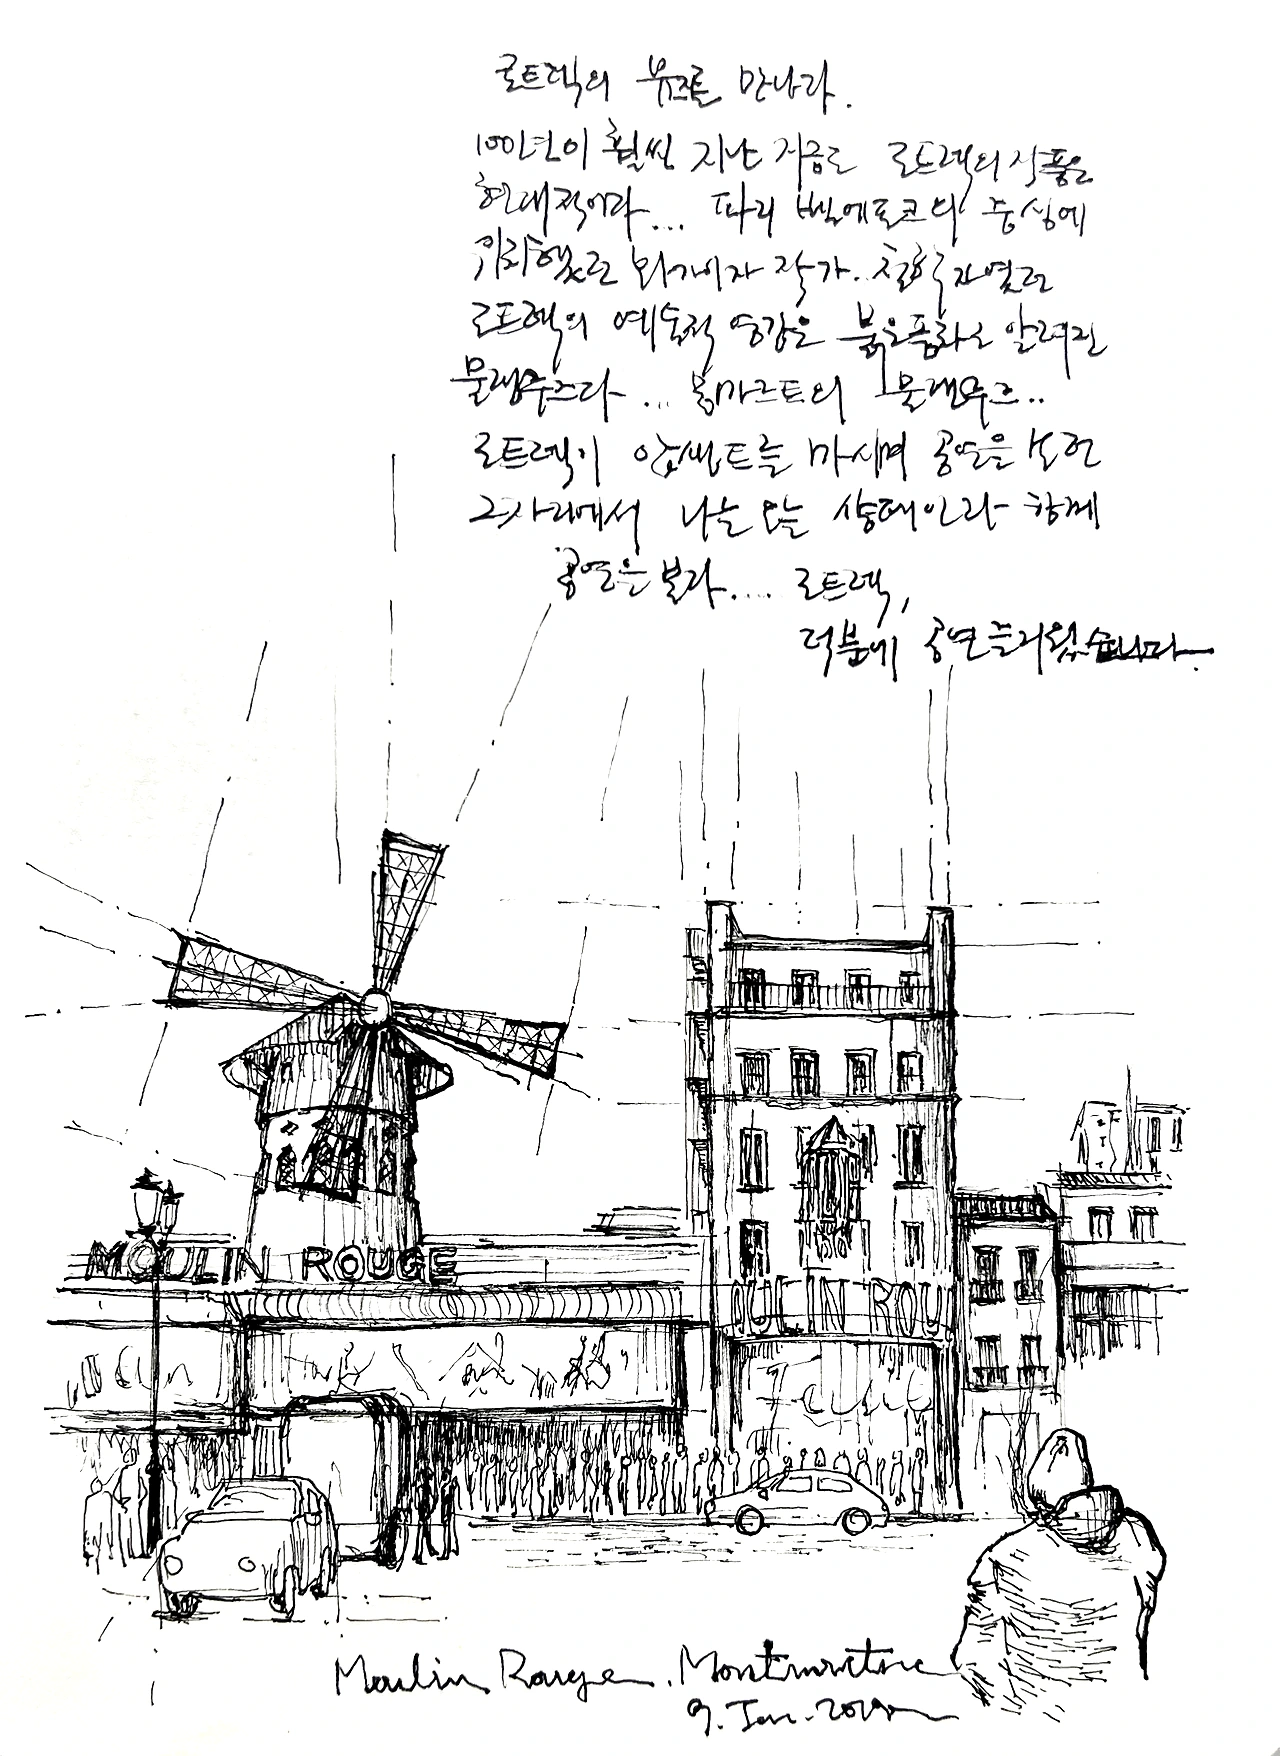 로트렉의 뮤즈를 만나다.
100년이 훨씬 지난 지금도 로트렉의 작품은
현대적이다... 파리 벨에포크의 중심에
위치했던 화가이자 작가..
로트렉의 예술적 영감은 붉은풍차로 알려진
물랭루즈다... 몽마르트의 물랭루즈..
로트렉이 압쌩트를 마시며 공연을 보던
그자리에서 나는 오늘 샴페인과 함께
공연을 본다.... 로트렉,
덕분에 공연 즐거웠습니다.
MOULIN ROUGE
OULIN ROU
Moulin Rouge. Montmartre
9. Jan. 2019